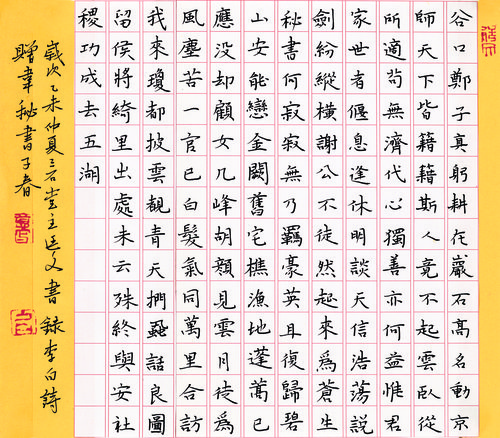 谷口鄭子真躬耕在巖石高名動京
師天下皆籍籍斯人竟不起雲臥從
所適苟無濟代心獨善亦何益惟君
家世者偃息逢休明談天信浩蕩說
劍紛縱橫謝公不徒然起來為蒼生
秘書何寂寂無乃羈豪英且復歸碧
山安能戀金闕舊宅樵漁地蓬蒿已
應没却顧女几峰胡顏見雲月徒為
風塵苦一官已白髮氣同萬里合訪
我來瓊都披雲覩青天捫虱話良圖
留侯將綺里出處未云殊終與安社
稷功成去五湖
歲次乙未仲夏三石堂主廷文書錄李白詩
贈韋秘書子春